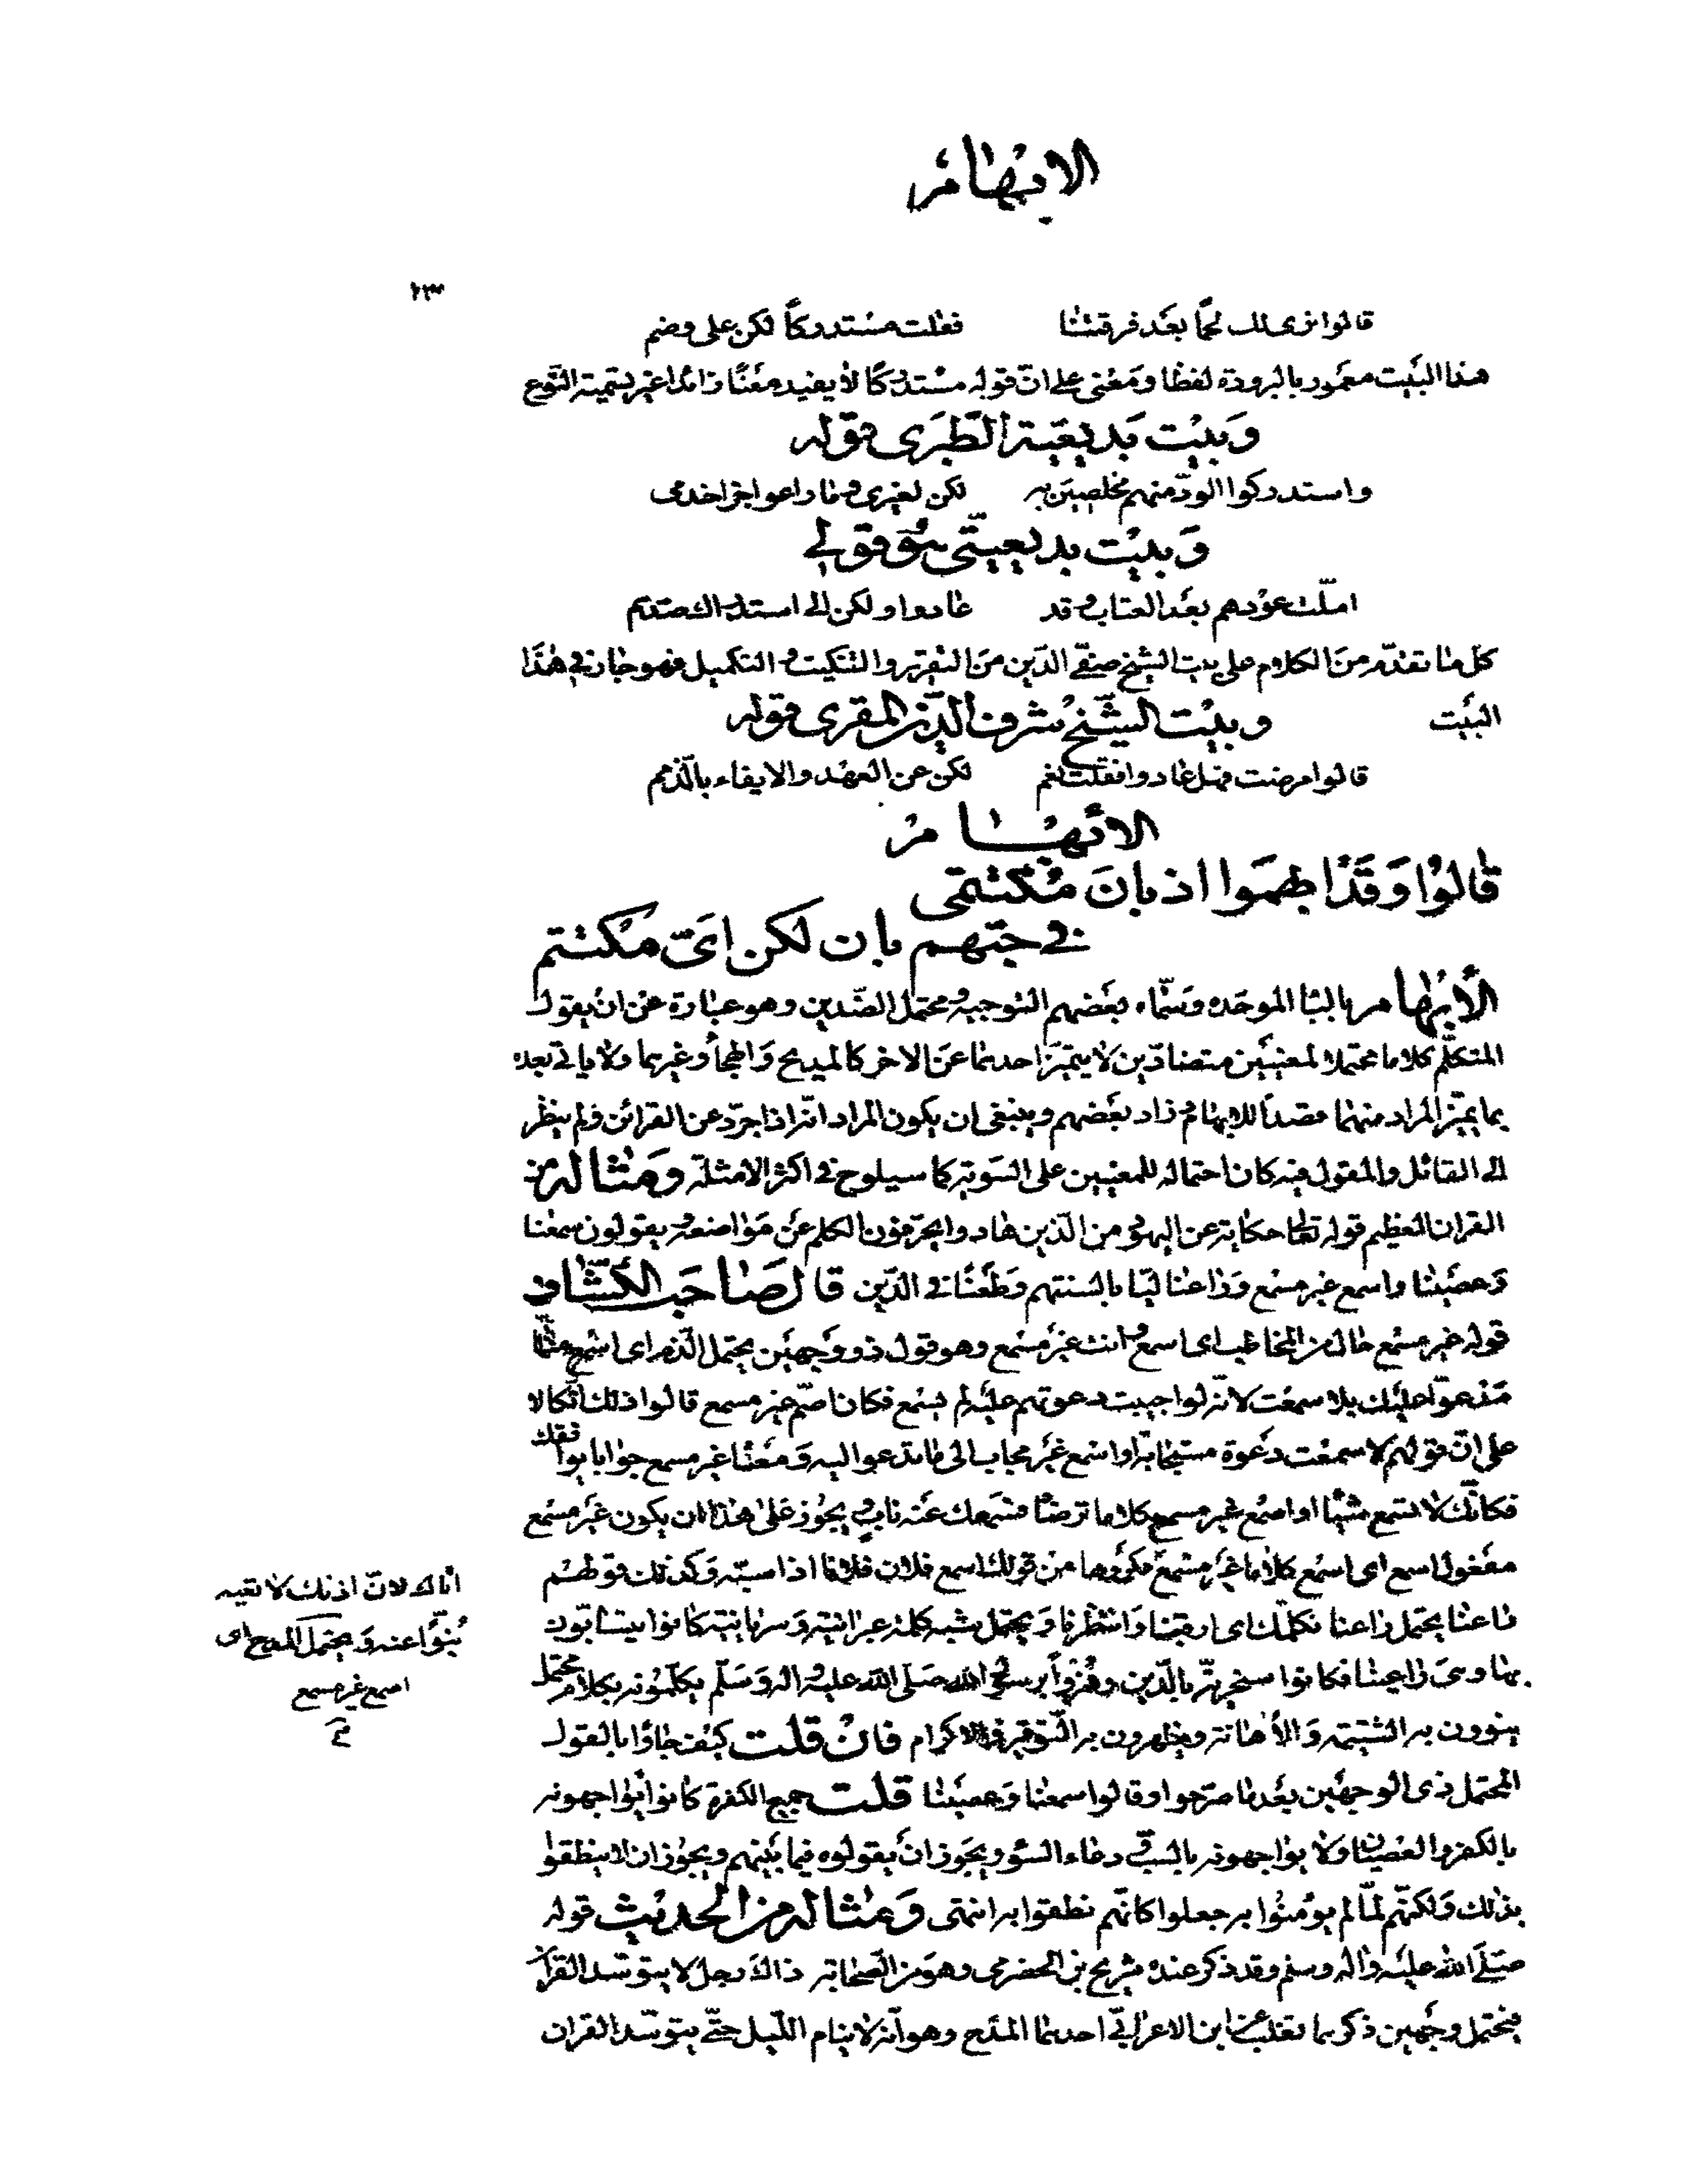 الابهام
١٣٢
قالوا نرى لك لحمًا بعد فرقتنا فقلت مستدركًا لكن على وضم
هذا البيت معمور بالبرودة لفظا ومعنى على انّ قوله مستدركًا لا يفيد معنًا زائدا غير تسمية النّوع
وبيت بديعيّة الطّبرى قوله
واستدركوا الودّ منهم مخلصين به لكن لغيرى وما راعوا
وبيت بديعيّتى هو قولى
امّلت عودهم بعد العتاب وقد عادوا ولكن الى استدراك صدّهم
كل ما تقدّم من الكلام على بيت الشيخ صفىّ الدّين من التقرير والتنكيت والتكميل فهو جار فى هذا
البيت وبيت الشّيخ شرف الدّين المقرى قوله
قالوا مرضت فهل عادوا فقلت نعم لكن عن العهد والايفاء بالذّمم
الابهام
قالوا وقد ابهموا اذ بان مكتتمى
فى حبّهم بان لكن اىّ مكتتم
الأبهام بالبا الموحّده وسمّاه بعضهم التوجيه ومحتمل الضّدين وهو عبارة عن ان يقول
المتكلّم كلاما محتملا لمعنيين متضادّين لا يتميّز احدهما عن الاخر كالمديح والهجأ وغيرهما ولا ياتى بعده
بما يميّز المراد منهما قصداً للابهام وزاد بعضهم وينبغى ان يكون المراد انّه اذا جرّد عن القرائن ولم ينظر
الى القائل والمقول فيه كان احتماله للمعنيين على السّوية كما سيلوح فى اكثر الامثلة ومثاله من
القران العظيم قوله تعالى حكاية عن اليهود من الّذين هادوا يحرّفون الكلم عن مواضعه ويقولون سمعنا
وعصينا واسمع غير مسمع وراعنا ليّا بالسنتهم وطعنًا فى الدّين قال صاحب الكشّاف
قوله غير مسمع حال من المخاطب اى اسمع وانت غير مسمع وهو قول ذو وجهين يحتمل الذّم اى اسمع منّا
مدعوّا عليك بلا سمعت لانّه لو اجيبت دعوتهم عليه لم يسمع فكان اصمّ غير مسمع قالوا ذلك اتّكالا
على انّ قولهم لا سمعت دعوة مستجابة او اسمع غير مجاب الى ما تدعو اليه ومعناه غير مسمع جوابا يوافقك
فكانّك لا تسمع شيئًا او اسمع غير مسمع كلاما ترضاه فسمعك عنه ناب ويجوز على هذا ان يكون غير مسمع
مفعول اسمع اى اسمع كلاما غير مسمع مكروها من قولك اسمع فلان فلانا اذا سبّه وكذلك قولهم
راعنا يحتمل راعنا نكلّمك اى ارقبنا وانتظرنا ويحتمل شبه كلمة عبرانية وسريانية كانوا يتسابّون
بها وهى راعينا فكانوا سخرية بالدّين وهزواً برسول الله صلى الله عليه واله وسلّم يكلّمونه بكلام محتمل
ينوون به الشتيمة والأهانة ويظهرون به التّوقير والاكرام فان قلت كيف جاؤا بالقول
المحتمل ذى الوجهين بعد ما صرّحوا وقالوا سمعنا وعصينا قلت جميع الكفرة كانوا يواجهونه
بالكفر والعصيان ولا يواجهونه بالسّبّ ودعاء السّوء ويجوز ان يقولوه فيما بينهم ويجوز ان لا ينطقوا
بذلك ولكنّهم لمّا لم يؤمنوا به جعلوا كانّهم نطقوا به انتهى ومثاله من الحديث قوله
صلّى الله عليه واله وسلم وقد ذكر عنده شريح بن الحضرمى وهو من الصّحابة ذاك رجل لا يتوسّد القرآن
فيحتمل وجهين ذكرهما ثعلب عن ابن الاعرابىّ احدهما المدح وهو انّه لا ينام اللّيل حتّى يتوسّد القران
اناك لانّ اذنك لا تعيه
نبوّا عنه ويحتمل المدح اى
اسمع غير مسمع